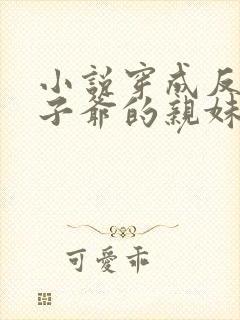 小說穿成反
子爺的親妹
可愛乖